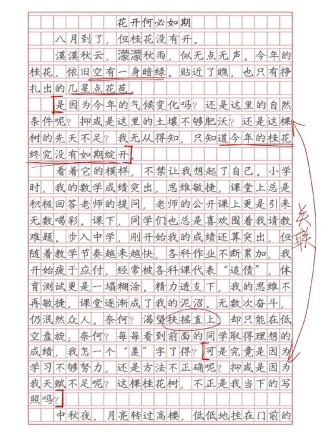 花开何必如期
八月到了，但桂花没有开。
漠漠秋云，濛濛秋雨，似无点无声。今年的
桂花，依旧空有一身暗绿。贴近了瞧，也只有挣
扎出的几星点花苞。
是因为今年的气候变化吗？还是这里的自然
条件呢？抑或是这里的土壤不够肥沃？还是这棵
树的先天不足？我无从得知，只知道今年的桂花
终究没有如期绽开。
看着它的模样，不禁让我想起了自己。小学
时，我的数学成绩突出，思维敏捷，课堂上总是
积极回答老师的提问，老师的公开课上更是引来
无数喝彩。课下，同学们也总是喜欢围着我请教
难题。步入中学，刚开始我的成绩还算突出，但
随着教学节奏越来越快，各科作业不断累加，我
开始疲于应付，经常被各科课代表“追债”，体
育测试更是一塌糊涂，精力透支下，我的思维不
再敏捷，课堂逐渐成了我的泥沼，无数次奋斗，
仍泯然众人，奈何？渴望扶摇直上，却只能在低
空盘旋，奈何？每每看到前面的同学取得理想的
成绩，我怎一个“羡”字了得？可是究竟是因为
学习不够努力，还是方法不正确呢？抑或是因为
我天赋不足呢？这棵桂花树，不正是我当下的写
照吗？
中秋夜，月亮转过高楼，低低地挂在门前的
关联